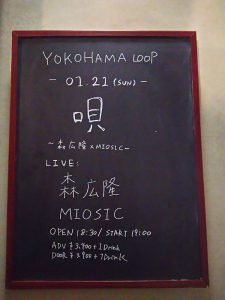 YOKOHAMA LOOP
- 01.21 (SUN) -
唄
~ 森広隆 x MIOSIC ~
LIVE:
森広隆
MIOSIC
OPEN 18:30/ START 19:00
ADV ¥3,400+1Drink
DOOR ¥3,900+1Drink